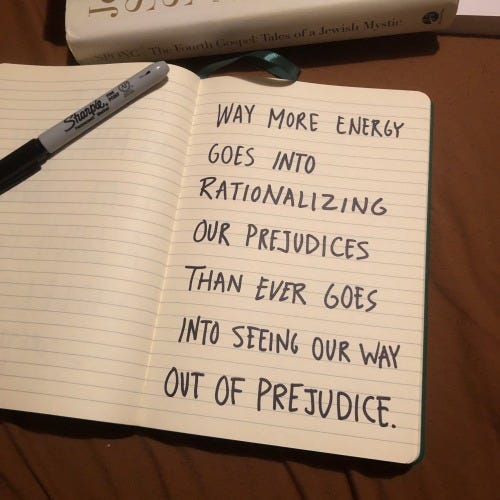 SPONG The Fourth Gospel: Tales of a Jewish Mystic
Sharpie
WAY MORE ENERGY
GOES INTO
RATIONALIZING
OUR PREJUDICES
THAN EVER GOES
INTO SEEING OUR WAY
OUT OF PREJUDICE.